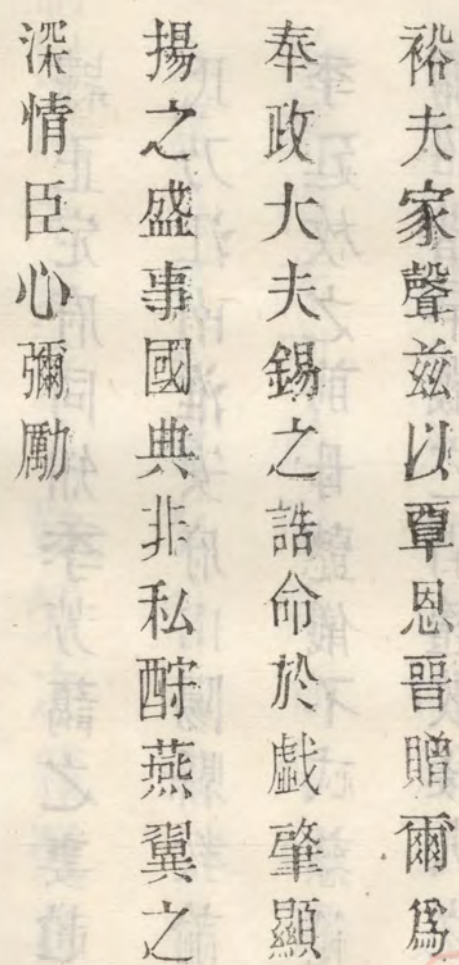 裕夫家聲兹以覃恩晉贈爾爲
奉政大夫錫之誥命於戲肇顯
揚之盛事國典非私酧燕翼之
深情臣心彌勵